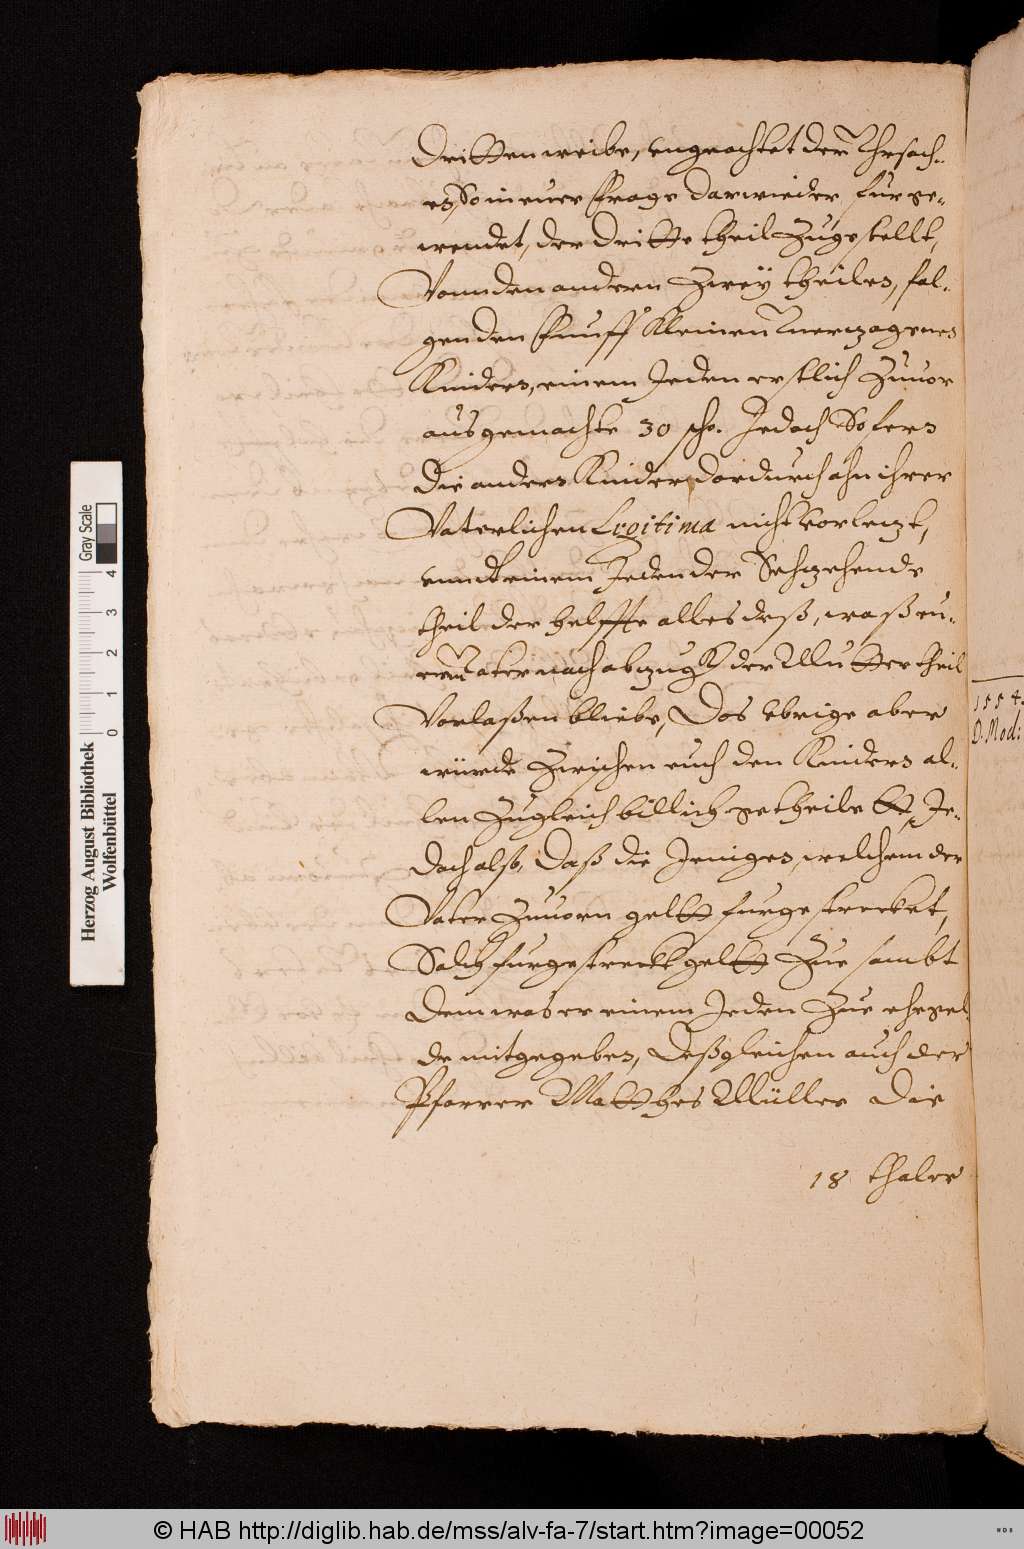 dritten weibe, vngeachtet der Vhrsach-
en, So in euer Frage darwieder furge-
wendet, der dritte theil Zugestellt,
Vonn den andern Zwey theilen, fol-
genden Funff Kleinen Vnerzagenen
Kindern, einem Jeden erstlich Zuuor
ausgemachte 30 ßo. Jedoch So fern
die andern Kinder dardurch ahn ihrer
Vaterlichen Legitima nicht vorletzt,
vnnd einem Jeden der Sechzehende
theil der helffte alles deß, waß eu-
er Vater nach abzugk der Mutter theil
Vorlaßen bliebe, Das vbrige aber
würde Zwischen euch den Kindern al-
len Zugleich billich getheilett, Je-
doch also, Daß die Jenigen, welchem der
Vater Zuuorn geltt furgestrecket,
Solch furgestreckt geltt Zue sambt
dem was er einem Jeden Zue ehegel-
de mitgegeben, Deßgleichen auch der
Pfarrer Matthes Müller Die
18 thaler
1554.
D. Mod:
Gray Scale
4 3 2 1 0
Herzog August Bibliothek
Wolfenbüttel
© HAB http://diglib.hab.de/mss/alv-fa-7/start.htm?image=00052